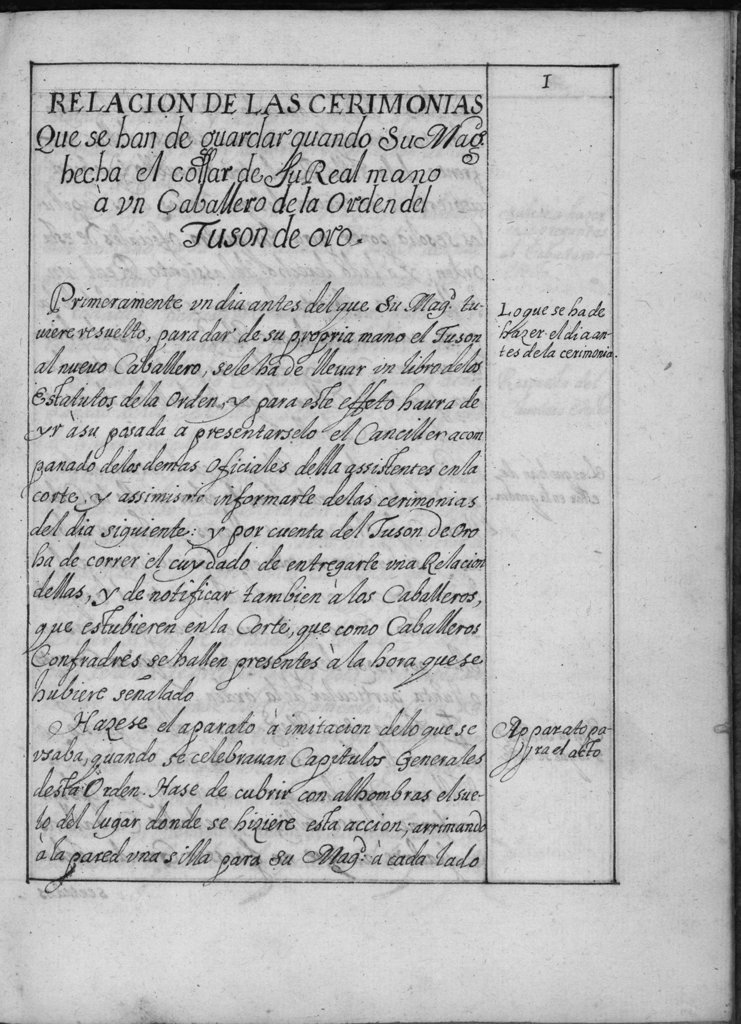 1
RELACION DE LAS CERIMONIAS
Que se han de guardar quando Su Magd.
hecha el collar de Su Real mano
à vn Caballero de la Orden del
Tuson de oro.
Primeramente vn dia antes del que Su Magd. tu-
uiere resuelto, para dar de su propria mano el Tuson
al nuevo Caballero, se le ha de lleuar vn libro de los
Estatutos de la Orden, y para este effeto haura de
yr à su posada a presentarselo el Canciller acon
panado de los demas Oficiales della assistentes en la
corte, y assimismo informarle de las cerimonias
del dia siguiente: y por cuenta del Tuson de Oro
ha de correr el cuydado de entregarle vna Relacion
dellas, y de notificar tambien à los Caballeros,
que estubieren en la Corte, que como Caballeros
Confradres se hallen presentes à la hora que se
hubiere señalado
Hazese el aparato à imitacion de lo que se
vsaba, quando se celebrauan Capitulos Generales
desta Orden. Hase de cubrir con alhombras el sue-
lo del lugar donde se hiziere esta accion; arrimando
à la pared vna silla para Su Magd. à cada lado
Lo que se ha de
hazer el dia an-
tes de la cerimonia.
Apparato pa-
ra el acto